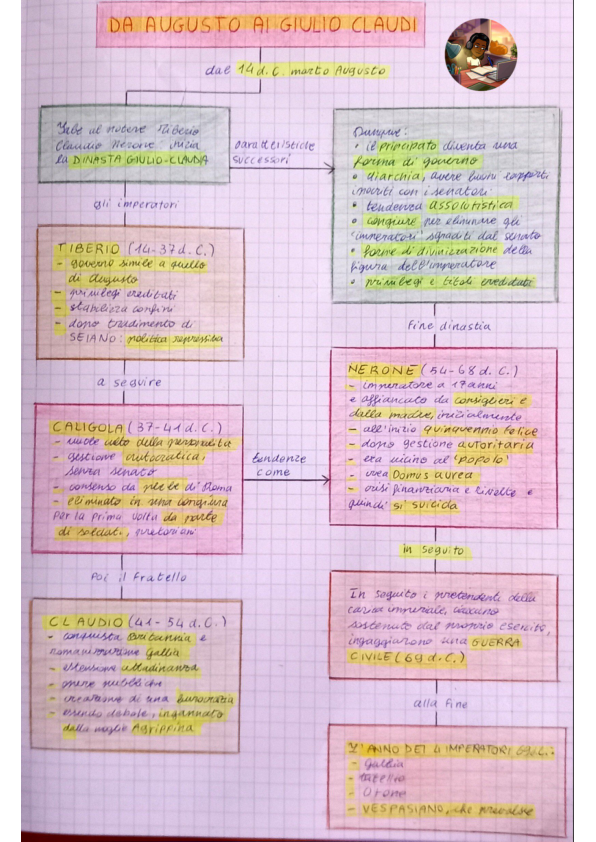 DA AUGUSTO AI GIULIO CLAUDI
dal 14 d.C. morto Augusto
Sale al potere Tiberio
Claudio Nerone: inizia
la DINASTA GIULIO-CLAUDIA
caratteristiche
successori
Dunque:
• il principato diventa una
forma di governo
• diarchia, avere buoni rapporti
con i senatori
• tendenza assolutistica
• congiure per eliminare gli
'imperatori' sgraditi dal senato
• forme di divinizzazione della
figura dell'imperatore
• privilegi e titoli ereditati
gli imperatori
TIBERIO (14-37 d.C.)
- governo simile a quello
di Augusto
- privilegi ereditati
- stabilizza confini
- dopo tradimento di
SEIANO: politica repressiva
a seguire
CALIGOLA (37-41 d.C.)
- vuole culto della personalità
- gestione autocratica,
senza senato
- consenso da plebe di Roma
- eliminato in una congiura
per la prima volta da parte
di soldati, pretoriani
tendenze
come
Poi il fratello
CLAUDIO (41-54 d.C.)
- conquista Britannia e
romanizzazione Gallia
- estensione cittadinanza
- opere pubbliche
- creazione di una burocrazia
- essendo debole, ingannato
dalla moglie Agrippina
Fine dinastia
NERONE (54-68 d.C.)
- imperatore a 17 anni
e affiancato da consiglieri e
dalla madre, inizialmente
- all'inizio quinquennio felice
- dopo gestione autoritaria
- era vicino al 'popolo'
- crea Domus aurea
- crisi finanziaria e rivolte e
quindi si suicida
in seguito
In seguito i pretendenti della
carica imperiale, ciascuno
sostenuto dal proprio esercito,
ingaggiarono una GUERRA
CIVILE (69 d.C.)
alla fine
L'ANNO DEI 4 IMPERATORI 69 d.C.:
- galbia
- Otone
- VESPASIANO, che prevalse